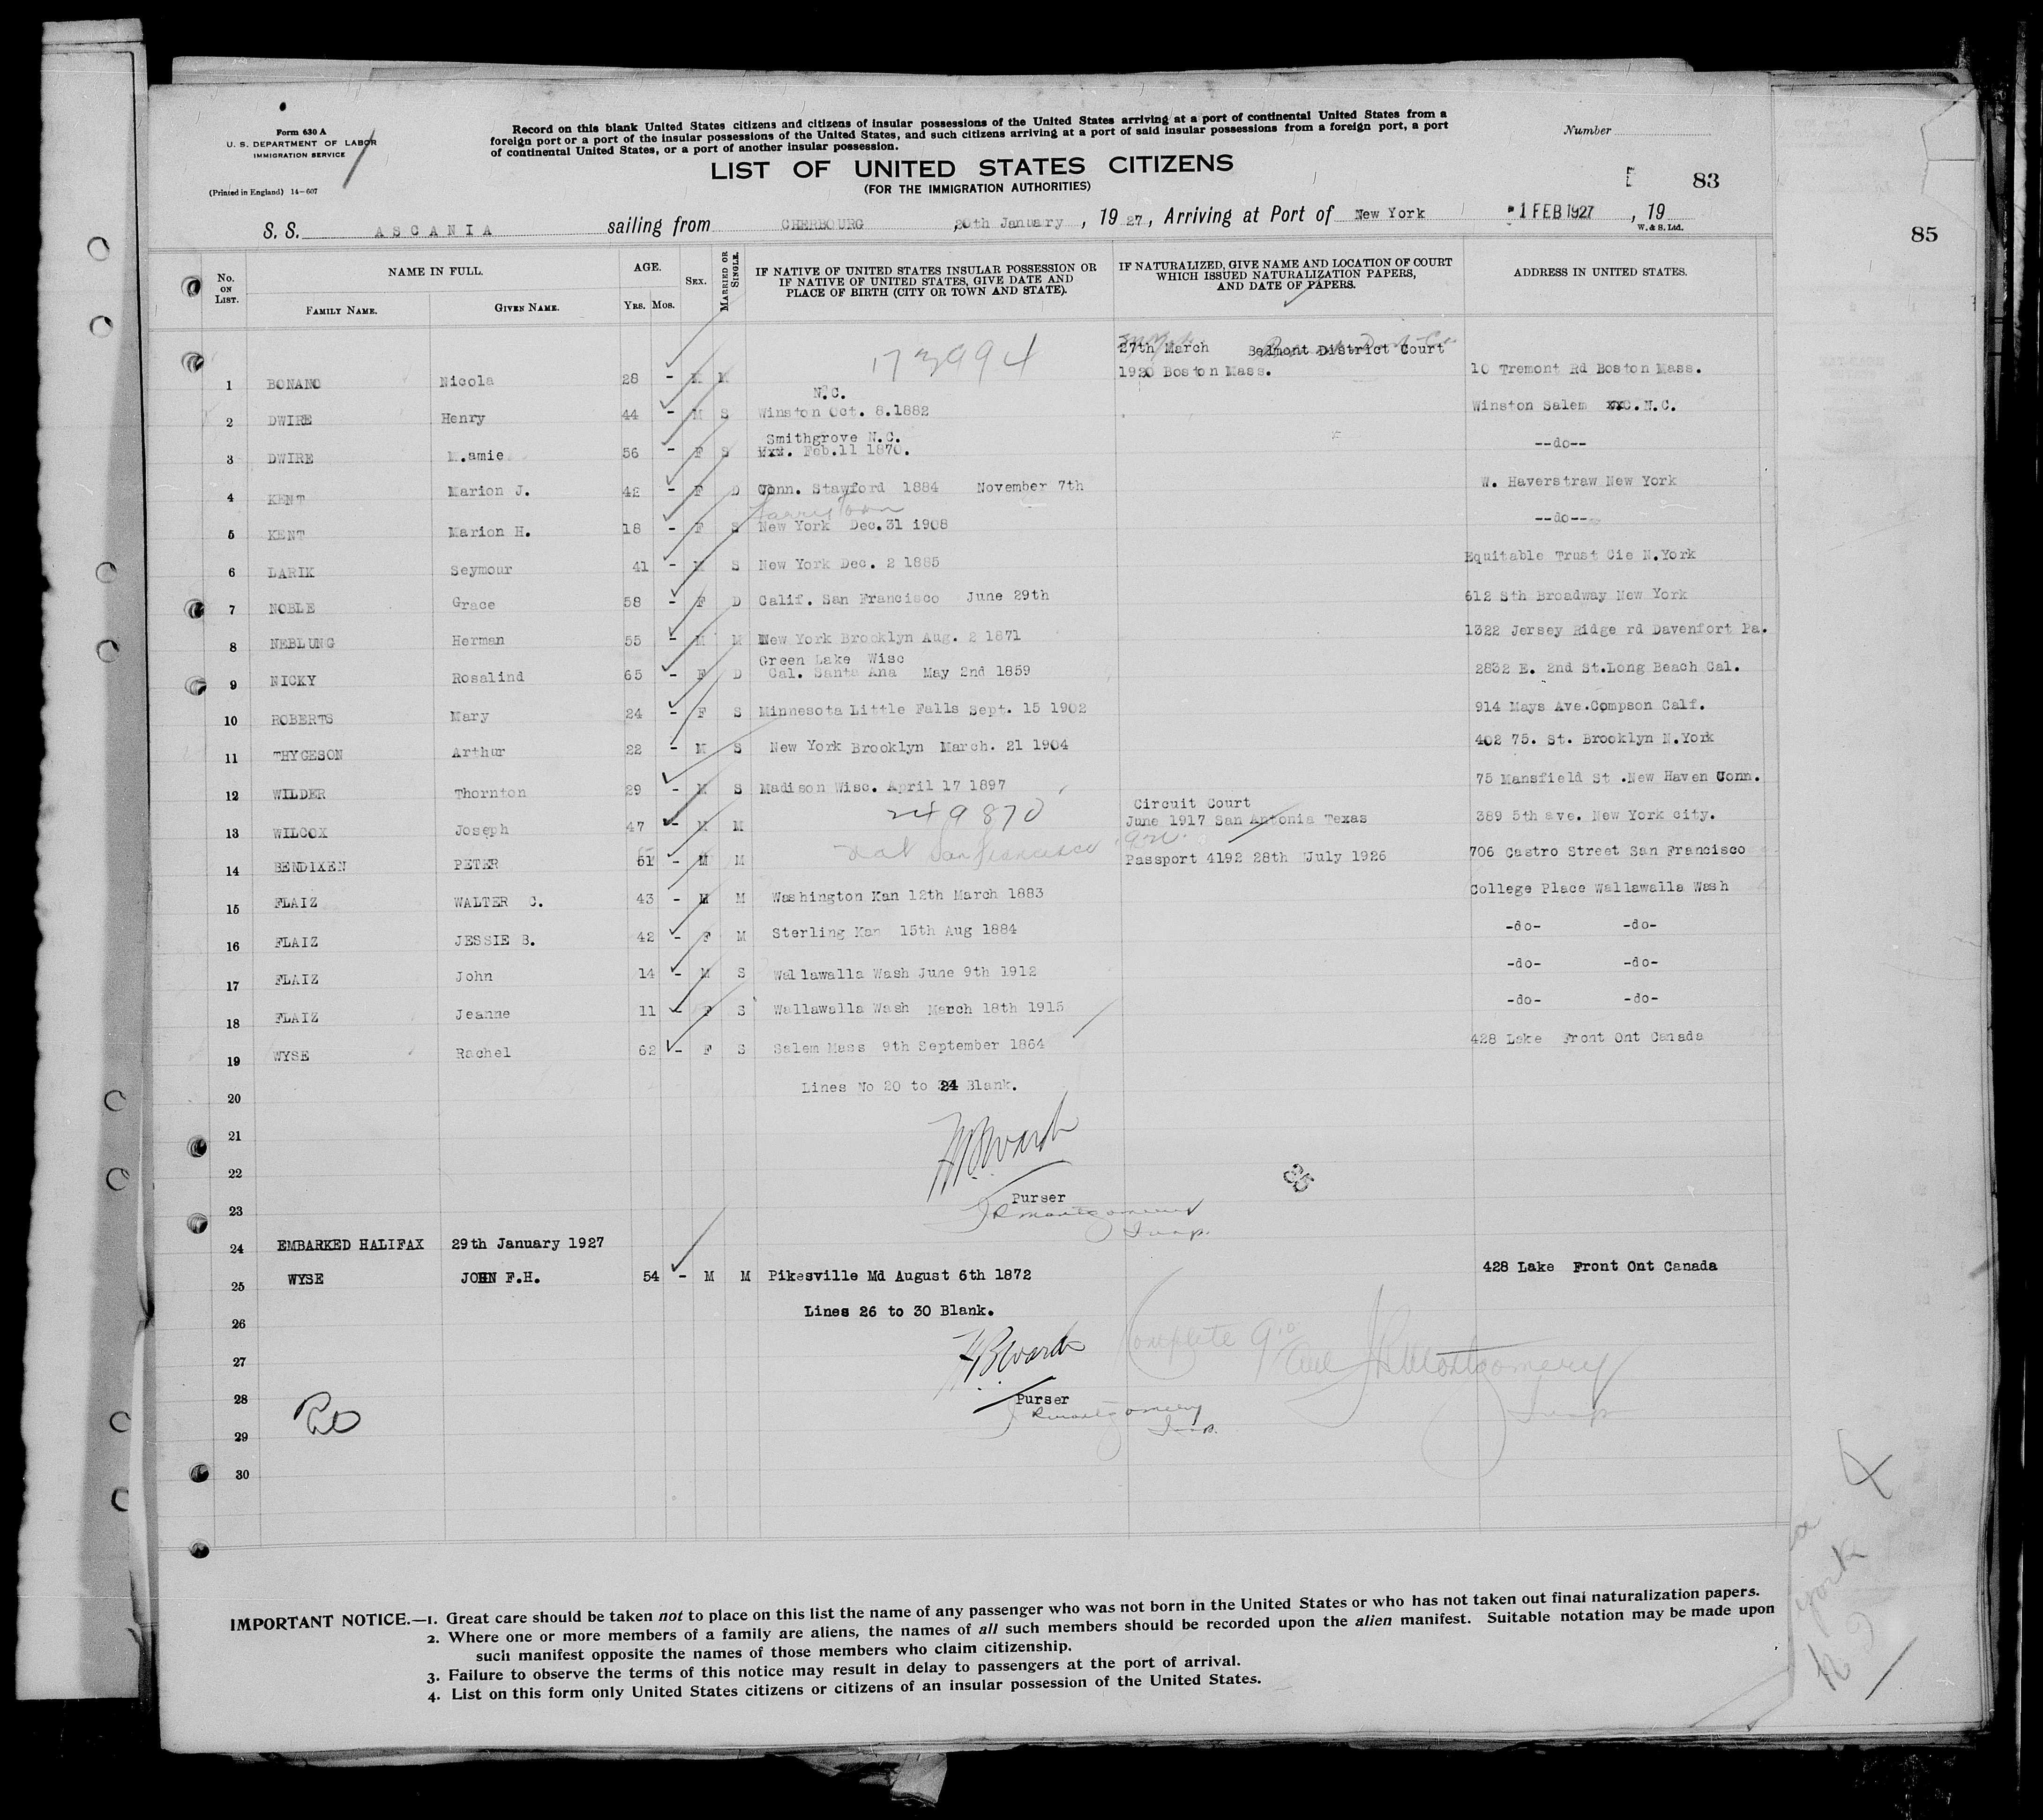 Form 630 A
U. S. DEPARTMENT OF LABOR
IMMIGRATION SERVICE
(Printed in England) 14-607
Record on this blank United States citizens and citizens of insular possessions of the United States arriving at a port of continental United States from a
foreign port or a port of the insular possessions of the United States, and such citizens arriving at a port of said insular possessions from a foreign port, a port
of continental United States, or a port of another insular possession.
LIST OF UNITED STATES CITIZENS
(FOR THE IMMIGRATION AUTHORITIES)
Number
83
85
S. S. ASCANIA sailing from CHERBOURG, 20th January, 1927, Arriving at Port of New York 1 FEB 1927, 19
W. & S. Ltd.
No. ON LIST. NAME IN FULL. AGE. SEX. MARRIED OR SINGLE. IF NATIVE OF UNITED STATES INSULAR POSSESSION OR IF NATIVE OF UNITED STATES, GIVE DATE AND PLACE OF BIRTH (CITY OR TOWN AND STATE). IF NATURALIZED, GIVE NAME AND LOCATION OF COURT WHICH ISSUED NATURALIZATION PAPERS, AND DATE OF PAPERS. ADDRESS IN UNITED STATES.
FAMILY NAME. GIVEN NAME. YRS. MOS.
173994 27th March Belmont District Court
1 BONANO Nicola 28 - M M 1920 Boston Mass. 10 Tremont Rd Boston Mass.
N.C.
2 DWIRE Henry 44 - M S Winston Oct. 8.1882 Winston Salem xxC.N.C.
Smithgrove N.C.
3 DWIRE M.amie 56 - F S Feb.11 1870. --do--
4 KENT Marion J. 42 - F D Conn. Stawford 1884 November 7th W. Haverstraw New York
Tarrytown
5 KENT Marion H. 18 - F S New York Dec.31 1908 --do--
6 LARIK Seymour 41 - M S New York Dec. 2 1885 Equitable Trust Cie N.York
7 NOBLE Grace 58 - F D Calif. San Francisco June 29th 612 Sth Broadway New York
8 NEBLUNG Herman 55 - M M New York Brooklyn Aug. 2 1871 1322 Jersey Ridge rd Davenfort Pa.
Green Lake Wisc
9 NICKY Rosalind 65 - F D Cal. Santa Ana May 2nd 1859 2832 E. 2nd St.Long Beach Cal.
10 ROBERTS Mary 24 - F S Minnesota Little Falls Sept. 15 1902 914 Mays Ave.Compson Calf.
11 THYGESON Arthur 22 - M S New York Brooklyn March. 21 1904 402 75. St. Brooklyn N.York
12 WILDER Thornton 29 - M S Madison Wisc. April 17 1897 75 Mansfield St .New Haven Conn.
249870 Circuit Court
13 WILCOX Joseph 47 - M M June 1917 San Antonia Texas 389 5th ave. New York city.
Nat San Francisco
14 BENDIXEN PETER 51 - M M Passport 4192 28th July 1926 706 Castro Street San Francisco
15 FLAIZ WALTER C. 43 - M M Washington Kan 12th March 1883 College Place Wallawalla Wash
16 FLAIZ JESSIE B. 42 - F M Sterling Kan 15th Aug 1884 -do- -do-
17 FLAIZ John 14 - M S Wallawalla Wash June 9th 1912 -do- -do-
18 FLAIZ Jeanne 11 - F S Wallawalla Wash March 18th 1915 -do- -do-
19 WYSE Rachel 62 - F S Salem Mass 9th September 1864 428 Lake Front Ont Canada
20 Lines No 20 to 24 Blank.
21
22
85
23 Purser
JRMontgomery
Insp.
24 EMBARKED HALIFAX 29th January 1927
25 WYSE JOHN F.H. 54 - M M Pikesville Md August 6th 1872 428 Lake Front Ont Canada
26 Lines 26 to 30 Blank.
27 Complete JRMontgomery
28 Purser Insp
JRMontgomery
29 Insp.
30
IMPORTANT NOTICE.—1. Great care should be taken not to place on this list the name of any passenger who was not born in the United States or who has not taken out final naturalization papers.
2. Where one or more members of a family are aliens, the names of all such members should be recorded upon the alien manifest. Suitable notation may be made upon
such manifest opposite the names of those members who claim citizenship.
3. Failure to observe the terms of this notice may result in delay to passengers at the port of arrival.
4. List on this form only United States citizens or citizens of an insular possession of the United States.